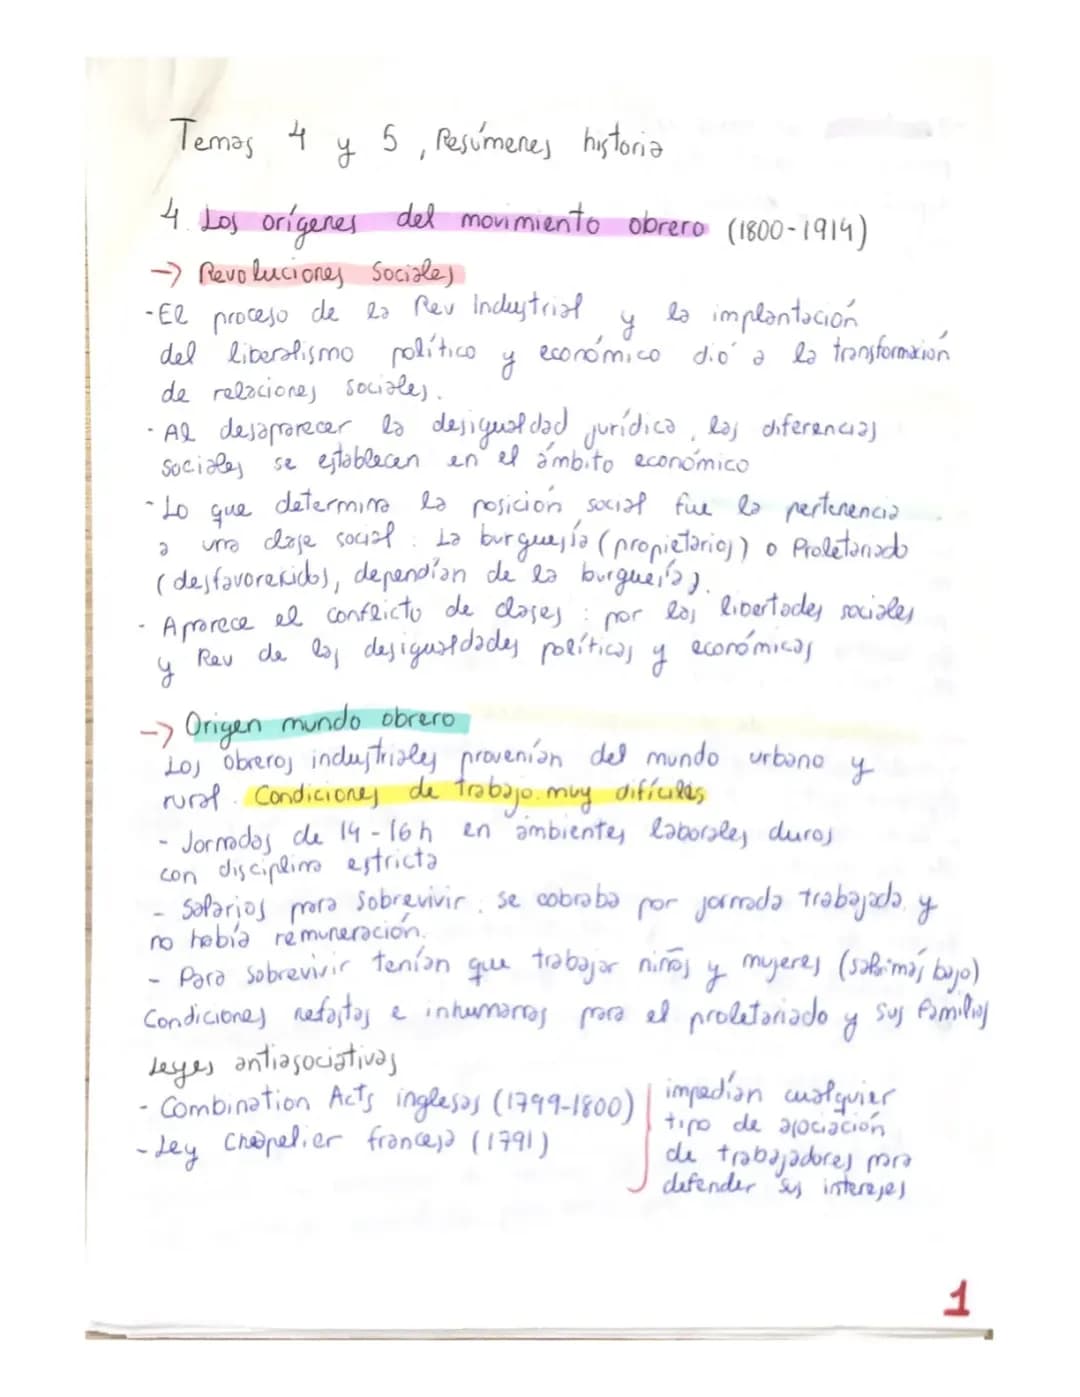 Temas 4 y 5, Resúmenes historia
4. Los orígenes del movimiento obrero (1800-1914)
→ Revoluciones Sociales
-El proceso de la Rev Industrial y la implantación
del liberalismo político y económico dió a la transformación
de relaciones sociales.
- Al desaparecer la desigualdad jurídica, las diferencias
sociales se establecen en el ámbito económico
- Lo que determina la posición social fue la pertenencia
a una clase social: La burguesía (propietarios) o Proletariado
(desfavorekidos, dependían de la burguesía).
- Aparece el conflicto de clases: por las libertades sociales
y Rev de las desigualdades políticas y económicas
→ Origen mundo obrero
Los obreros industriales provenían del mundo urbano y
rural. Condiciones de trabajo muy difíciles
- Jornadas de 14-16h en ambientes laborales duros
con disciplina estricta
- Salarios para sobrevivir. Se cobraba por jornada trabajada y
no había remuneración.
- Para sobrevivir tenían que trabajar niños y mujeres (salri más bajo)
Condiciones nefastas e inhumanas para el proletariado y sus familias
Leyes antiasociativas
- Combination Acts inglesas (1799-1800)
- Ley Chapelier francesa (1791)
impedían cualquier
tipo de asociación
de trabajadores para
defender sus intereses
1